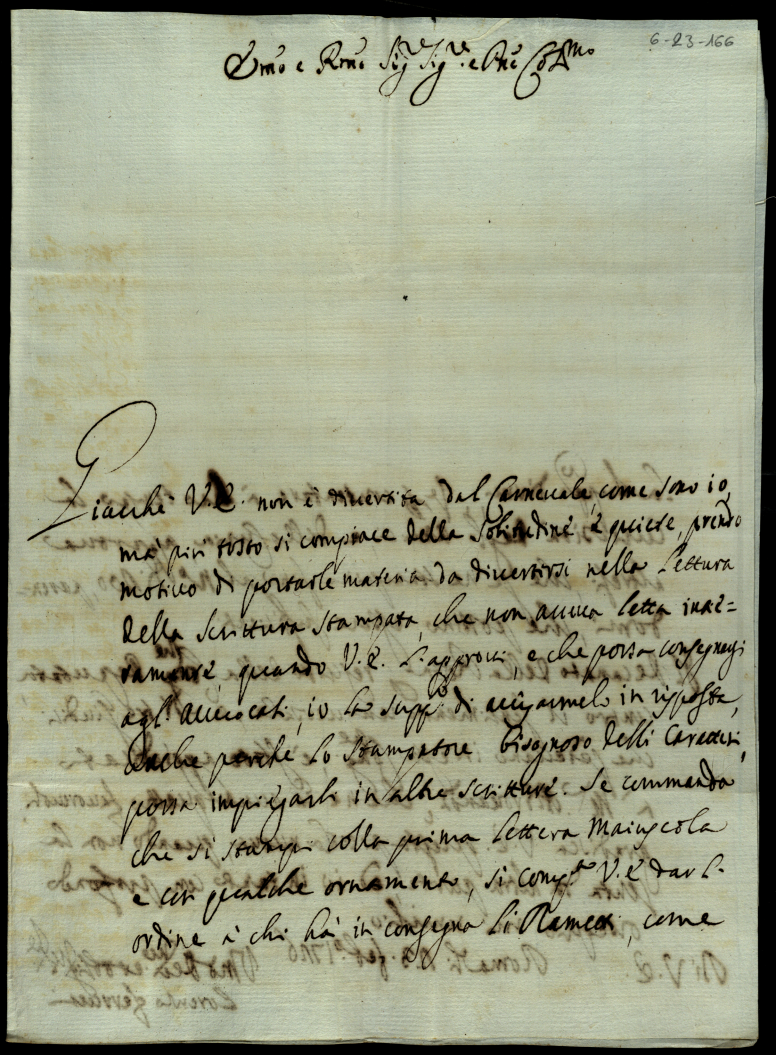 6-23-166
Emo e Rmo Sigre Sigre e Pne Colmo
Giache V.E. non è divertita dal Carnevale, come sono io,
mà più tosto si compiace della Solitudine è quiete, prendo
motivo di portarle materia da divertirsi nella Lettura
della scrittura stampata, che non aveva letta inte=
ramente, quando V.E. l'approvi, e che possa consegnarsi
agl'Avvocati, io la suppco di
anche perche lo stampatore bisognoso delli Caratteri,
possa impiegarli in altre scritture. Se commanda
che si stampi colla prima lettera Maiuscola
e con qualche ornamento, si V.E. dar l'
ordine à chi hà in consegna li Rametti, come